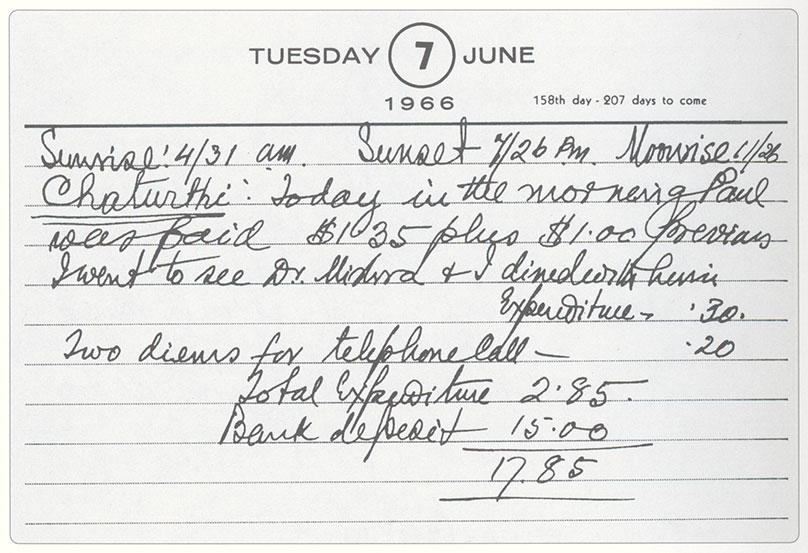 TUESDAY 7 JUNE
1966
158th day - 207 days to come
Sunrise: 4/31 am. Sunset 7/26 Pm. Moonrise 11/26
Chaturthi: Today in the morning Paul
was paid $1.35 plus $1.00 previous
I went to see Dr. Mishra & I dined with him
Expenditure - .30.
Two diems for telephone Call - .20
Total Expenditure 2.85.
Bank deposit 15.00
17.85